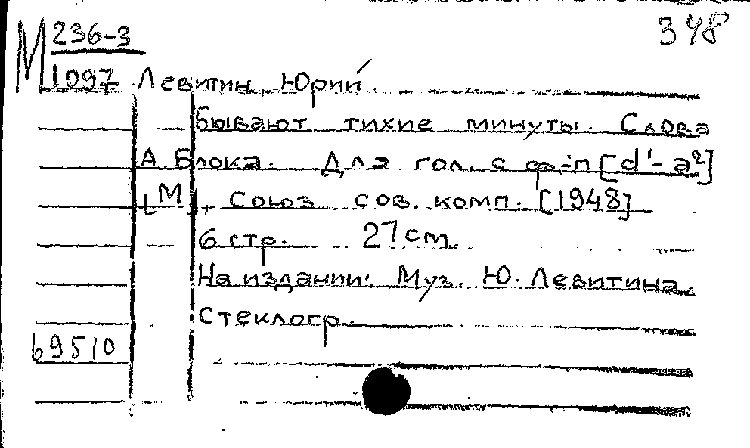 М 236-3
1097
348
Левитин, Юрий.
Бывают тихие минуты. Слова
А. Блока. Для гол. с ф-п [d¹-a²]
[М], Союз сов. комп. [1948]
6 стр. 27 см.
На издании: Муз. Ю. Левитина.
Стеклогр.
69510